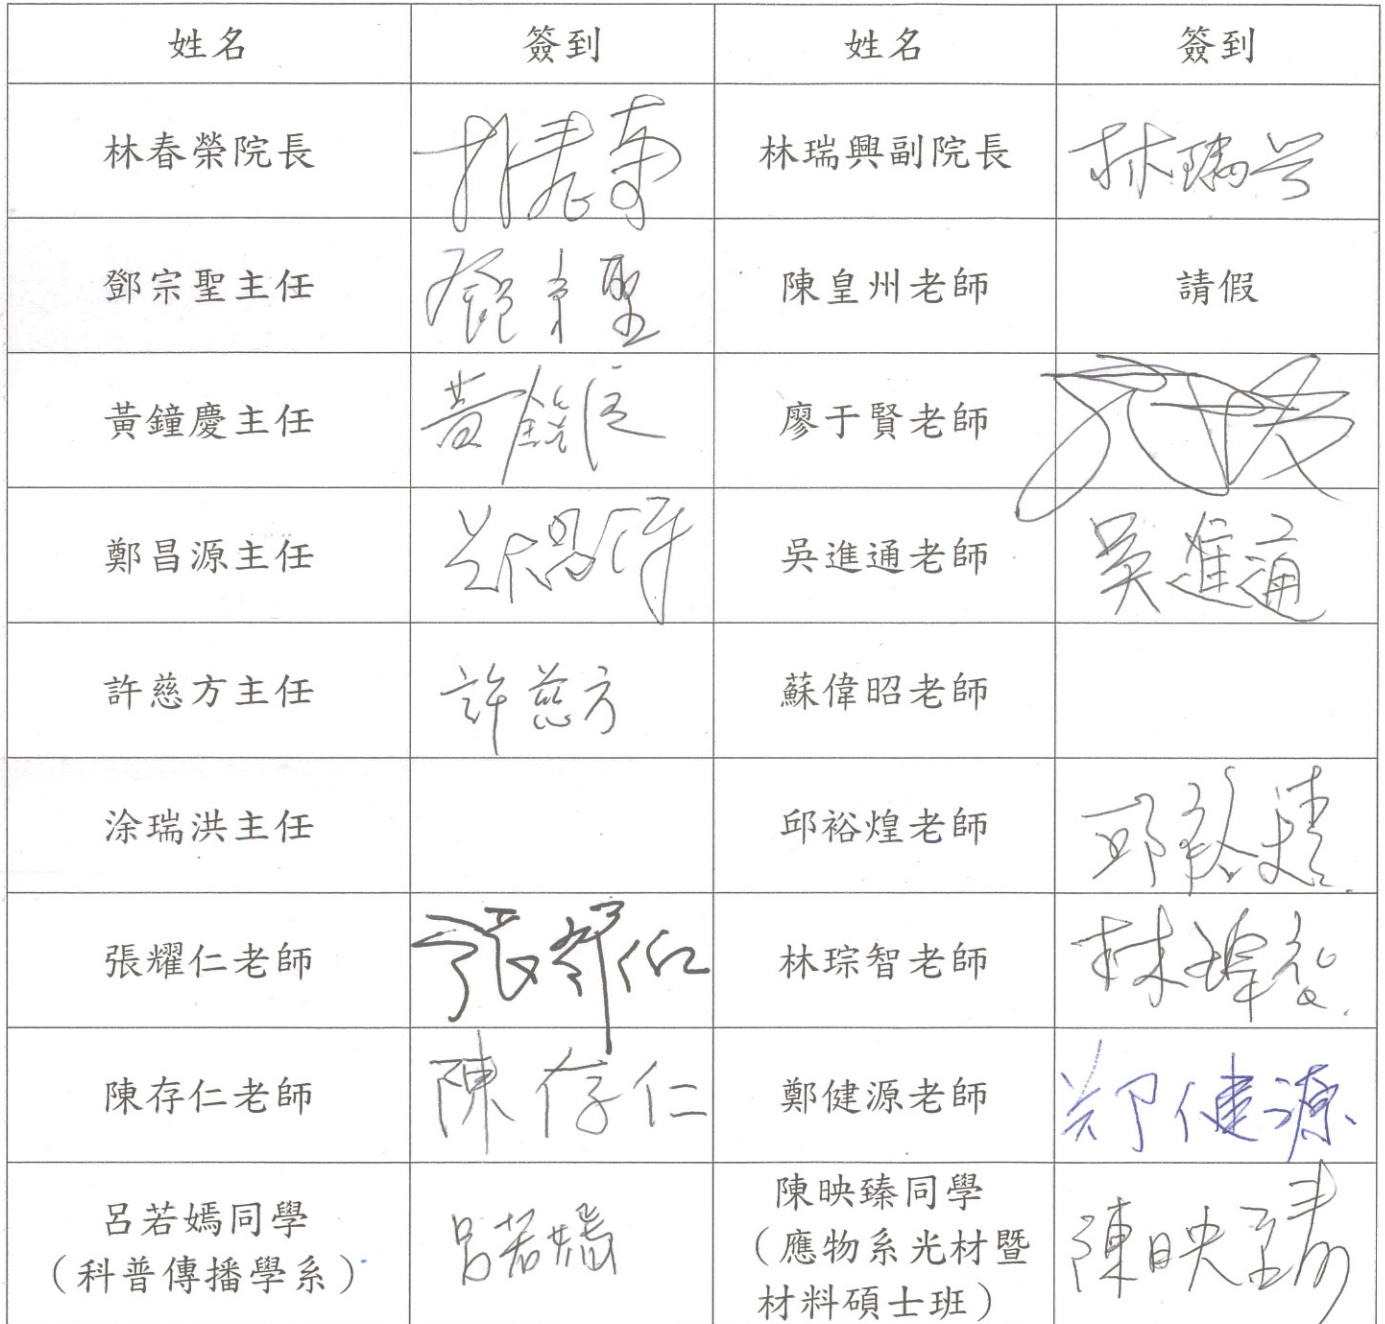 姓名 簽到 姓名 簽到
林春榮院長 林春榮 林瑞興副院長 林瑞興
鄧宗聖主任 鄧宗聖 陳皇州老師 請假
黃鐘慶主任 黃鐘慶 廖于賢老師
鄭昌源主任 鄭昌源 吳進通老師 吳進通
許慈方主任 許慈方 蘇偉昭老師
涂瑞洪主任 邱裕煌老師 邱裕煌
張耀仁老師 張耀仁 林琮智老師 林琮智
陳存仁老師 陳存仁 鄭健源老師 鄭健源
呂若嫣同學 呂若嫣 陳映臻同學 陳映臻
（科普傳播學系） （應物系光材暨
材料碩士班）